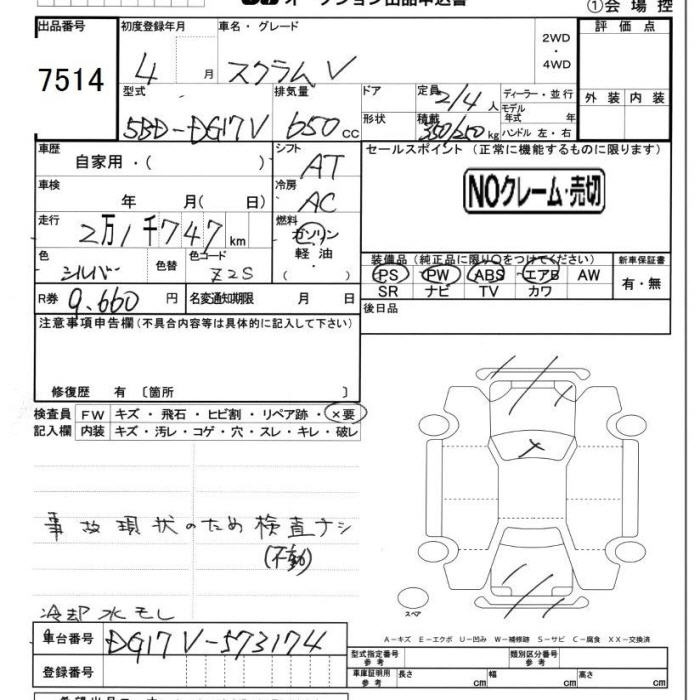 オークション出品申込書
①会場控
出品番号 初度登録年月 車名・グレード 評価点
7514 4 月 スクラムV 2WD・4WD
型式 排気量 ドア 定員 ディーラー・並行 外装 内装
5BD-DG17V 650cc 2/4人 モデル年式 年
形状 積載 350/250kg ハンドル 左・右
車歴 シフト セールスポイント (正常に機能するものに限ります)
自家用・( ) AT
NOクレーム・売切
車検 冷房
年 月( 日) AC
走行 燃料
2万1千747km ガソリン
軽油
・( )
色 色替 色コード 装備品(純正品に限り○をつけてください) 新車保証書
シルバー Z2S PS PW ABS エアB AW 有・無
SR ナビ TV カワ
R券 9.660円 名変通知期限 月 日 後日品
注意事項申告欄(不具合内容等は具体的に記入して下さい)
修復歴 有 〔箇所 〕
検査員 FW キズ・飛石・ヒビ割・リペア跡・×要
記入欄 内装 キズ・汚レ・コゲ・穴・スレ・キレ・破レ
事故現状のため検査ナシ
(不動)
冷却水モレ
スペア
A-キズ E-エクボ U-凹み W-補修跡 S-サビ C-腐食 XX-交換済
車台番号 DG17V-573174 型式指定番号 参考 類別区分番号 参考
登録番号 車庫証明用 参考 長さ cm 幅 cm 高さ cm